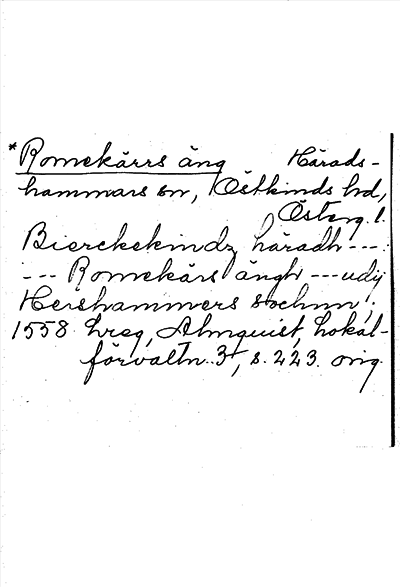 *Romekärrs äng Härads-
hammars sn, Östkinds hd,
Österg. l.
Bierckekindz häradh ---:
--- Romekärs ängh --- udij
Hershammers sochnn;
1558 hreg, Almquist, Lokal-
förvaltn. 3, s. 223. orig.